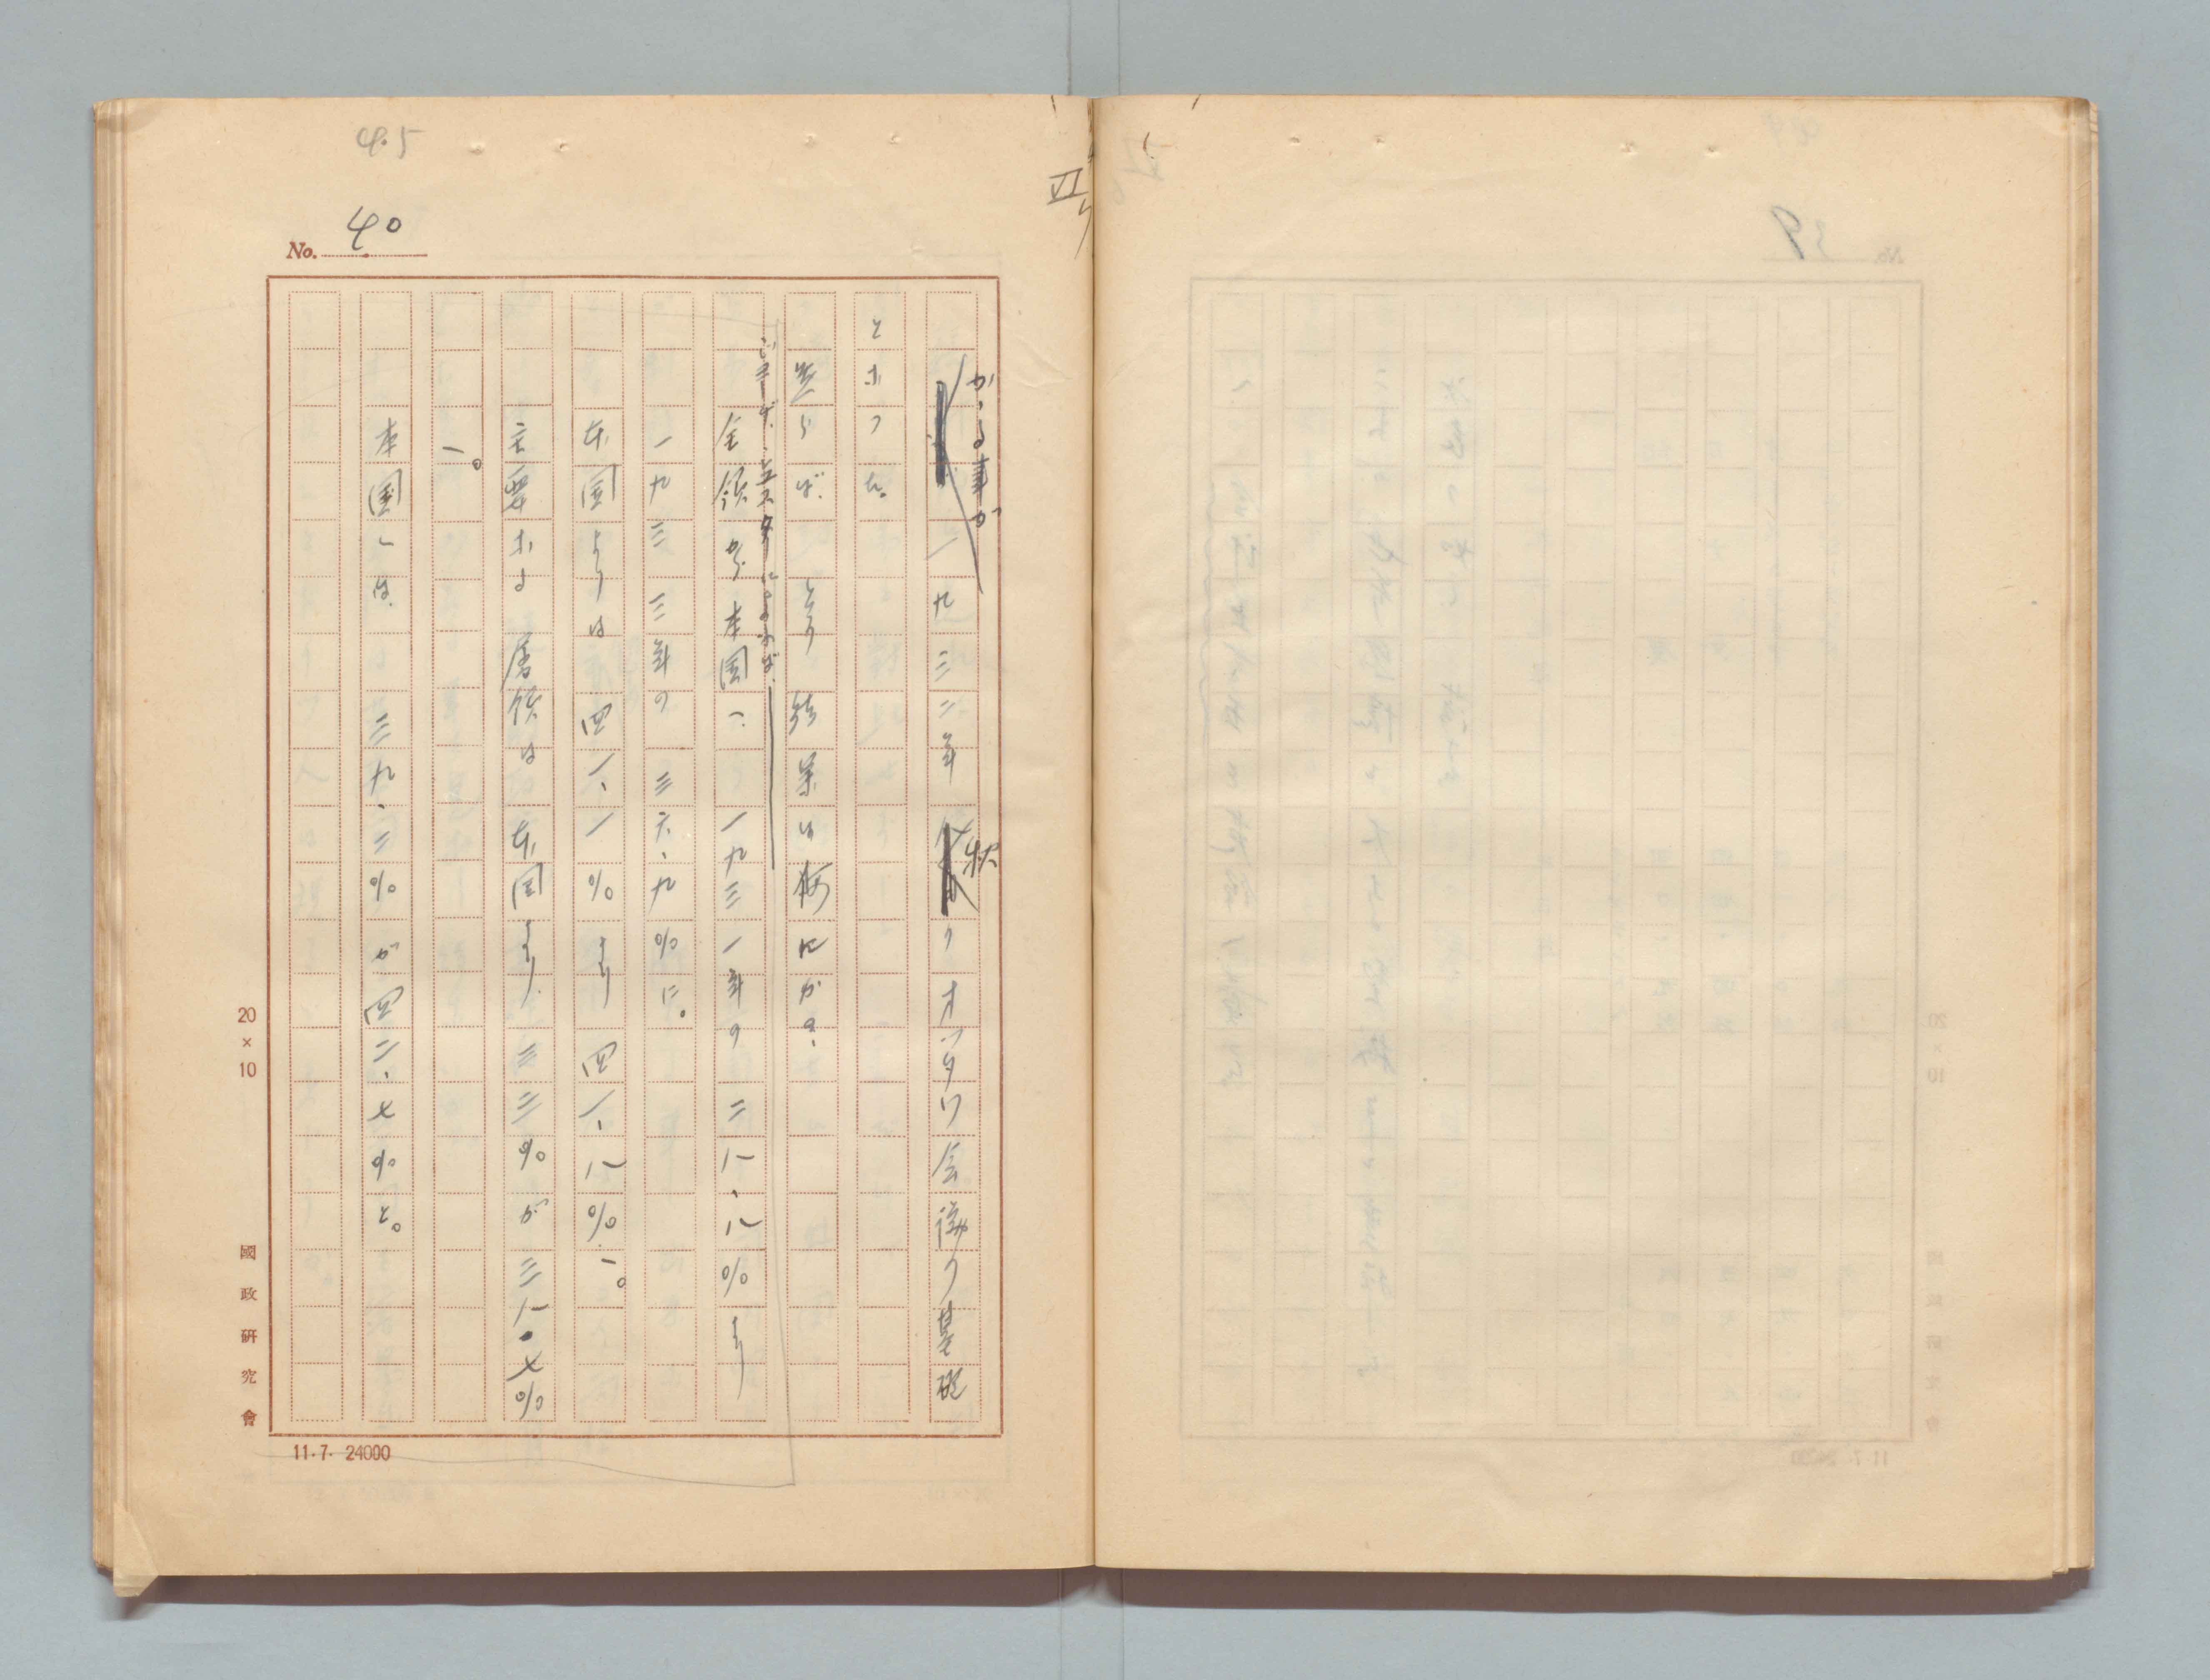 45
No. 40
VI
かゝる事が
一九三二年秋のオツタワ会議の基礎
となつた。
然らば、その結果は如何にか?
によれば、
全領から本国へ、一九三一年の二八、八%より
一九三三年の三六、九%に。
本国よりは四一、一%より四一、八%へ。
主要なる属領は本国より三三%が三八・七%
へ。
本国へは三九、三%が四二、七%と。
20×10
國政研究會
11・7・24000
39